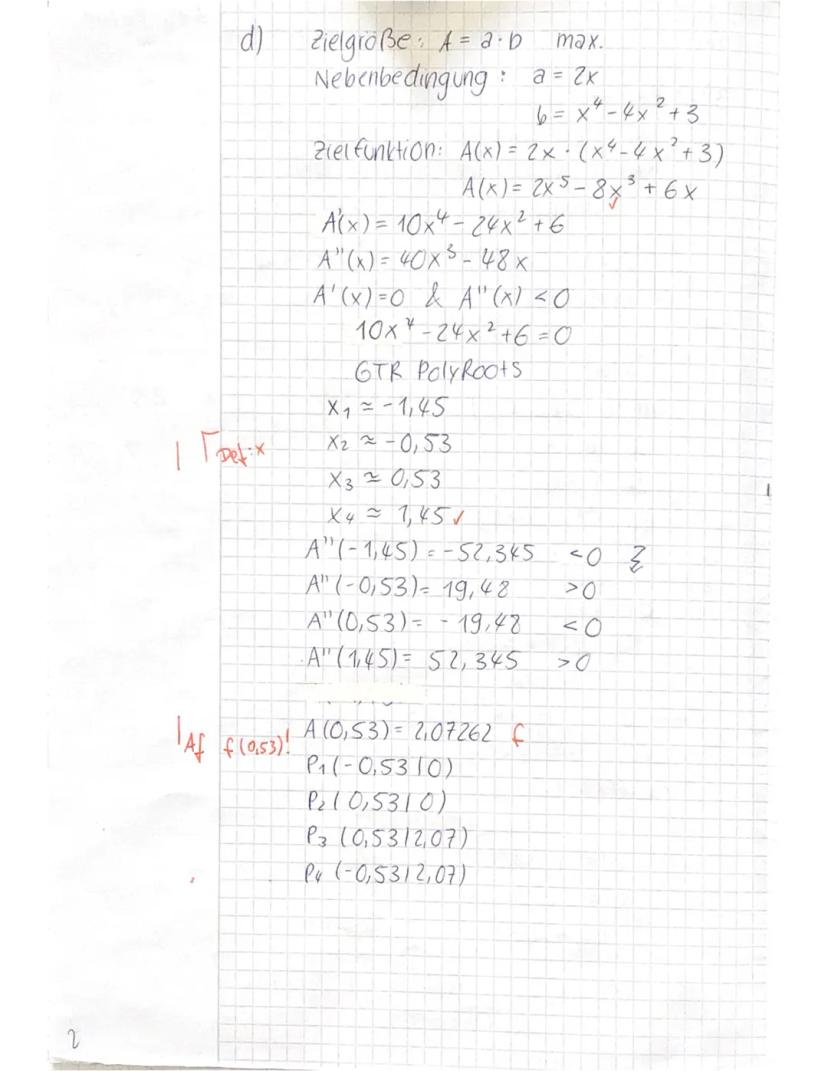 d) Zielgröße: A = a·b max.
Nebenbedingung: a = 2x
b = x⁴ - 4x² + 3
Zielfunktion: A(x) = 2x · (x⁴ - 4x² + 3)
A(x) = 2x⁵ - 8x³ + 6x
✓
A'(x) = 10x⁴ - 24x² + 6
A''(x) = 40x³ - 48x
A'(x) = 0 & A''(x) < 0
10x⁴ - 24x² + 6 = 0
GTR PolyRoots
x₁ ≈ -1,45
| Γ Def:x x₂ ≈ -0,53
x₃ ≈ 0,53
x₄ ≈ 1,45 ✓
A''(-1,45) = -52,345 < 0
A''(-0,53) = 19,48 > 0
A''(0,53) = -19,48 < 0
A''(1,45) = 52,345 > 0
| Af f(0,53)! A(0,53) = 2,07262 f
P₁(-0,53|0)
P₂(0,53|0)
P₃(0,53|2,07)
P₄(-0,53|2,07)
2